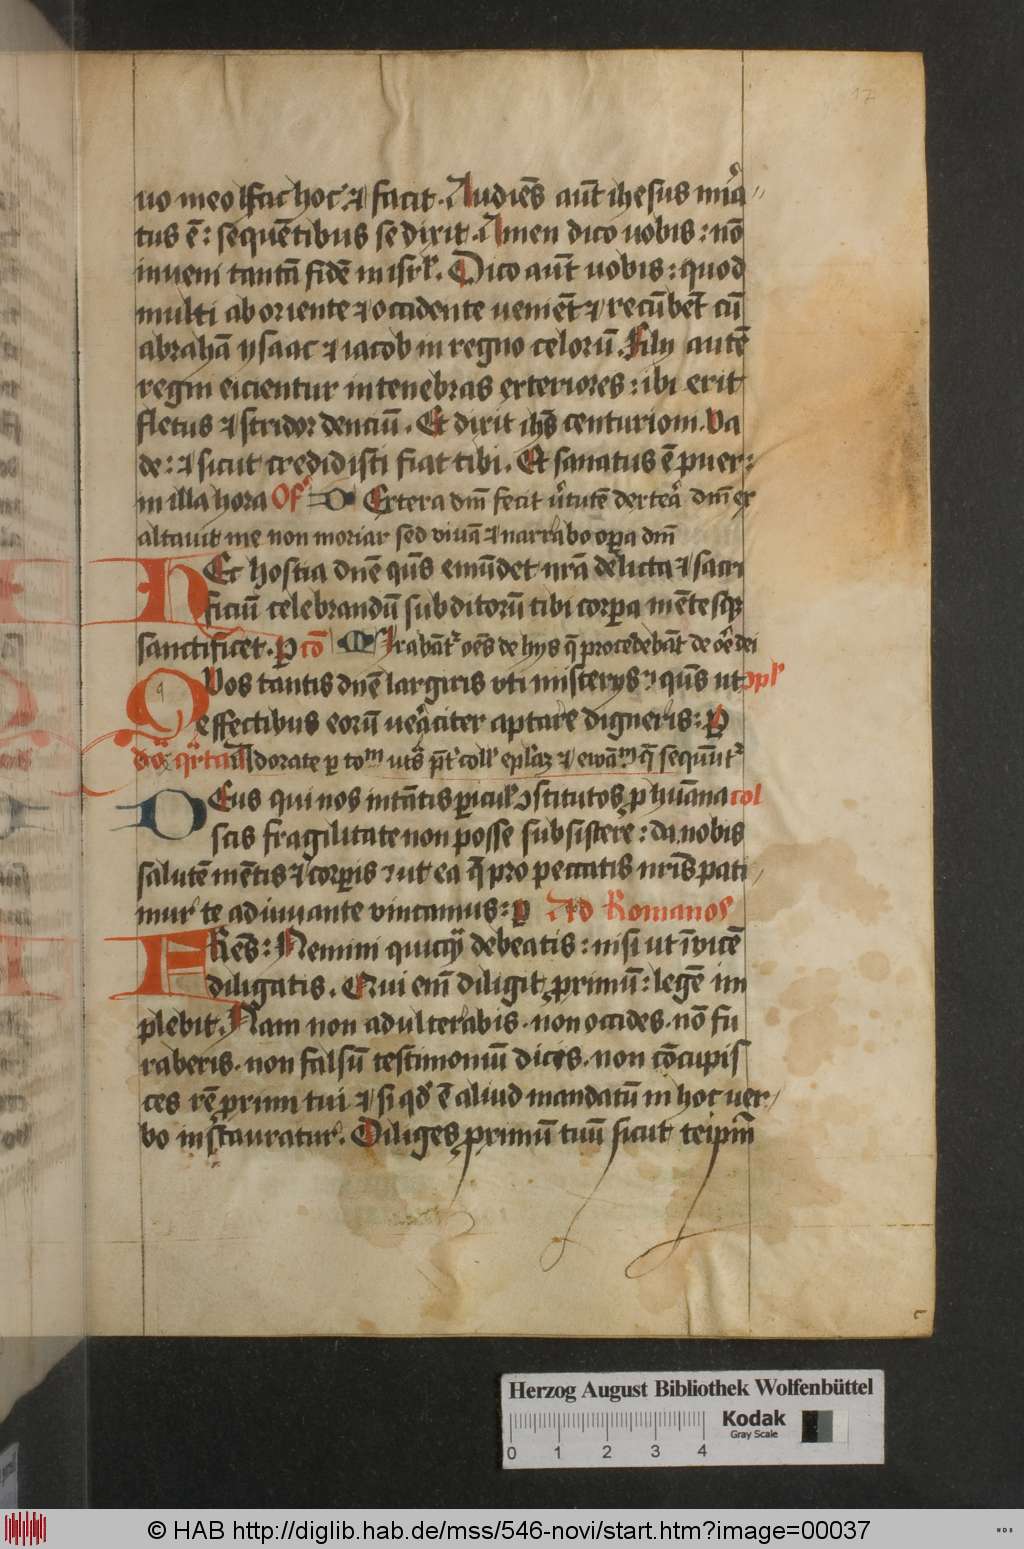 17
uo meo ffac hoc ⁊ facit. Audiēs aūt ihesus mirͣa
tus ē: sequētibus se dixit. Amen dico uobis: nō
inueni tantā fidē in isrl̕. Dico aūt uobis: quod
multi ab oriente ⁊ occidente ueniēt ⁊ recūbēt cū
abrahā ysaac ⁊ iacob in regno celorū. Filij autē
regni eicientur in tenebras exteriores: ibi erit
fletus ⁊ stridor denciū. Et dixit ihs̄ centurioni. Va
de: ⁊ sicut credidisti fiat tibi. Et sanatus ē puer:
in illa hora Of̕ Dextera dn̄i fecit v̕tutē dextera dn̄i ex
altauit me non moriar sed viuā ⁊ narrabo oꝑa dn̄i
Hec hostia dn̄e qūs emūdet nrā delicta ⁊ sacri
ficiū celebrandū subditorū tibi corꝑa mētesqꝫ
sanctificet. ꝑ cō Mirabāt̕ oēs de hijs q̄ procedebāt de ore dei
Quos tantis dn̄e largiris vti misterijs: qūs ut ꝯpl̕
effectibus eorū ueraciter aptare digneris: ꝑ
dō qͣrta Adorate ꝑ totum
Deus qui nos in tātis ꝑicul̕ ꝯstitutos ꝓ humāna col
scis fragilitate non posse subsistere: da nobis
salutē mētis ⁊ corꝑis: ut ea q̄ pro peccatis nrīs pati
mur te adiuuante vincamus: ꝑ Ad Romanos
FRēs: Nemini quicqͣ debeatis: nisi ut īuicē
diligatis. Qui eīn diligit proximū: legē im
plebit. Nam non adulterabis. non occides. nō fu
raberis. non falsū testimoniū dices. non cōcupis
ces rē proximi tui ⁊ si qd̕ ē aliud mandatū in hoc uer
bo instauratur. Diliges proximū tuū sicut teipm̄
Herzog August Bibliothek Wolfenbüttel
0 1 2 3 4
Kodak
Gray Scale
© HAB http://diglib.hab.de/mss/546-novi/start.htm?image=00037